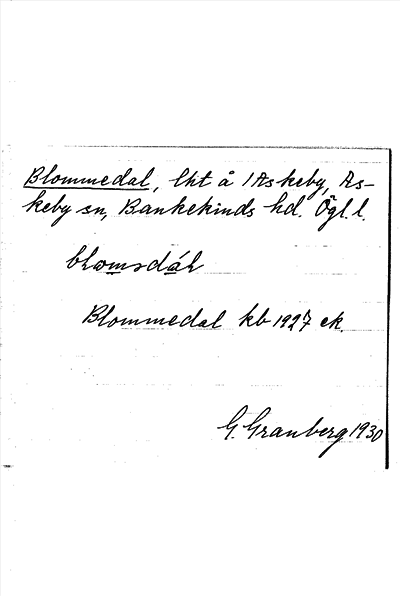 Blommedal, lht å Askeby, As-
keby sn, Bankekinds hd. Ögl. l.
blωmsdál
Blommedal kb 1927 ek.
G. Granberg 1930